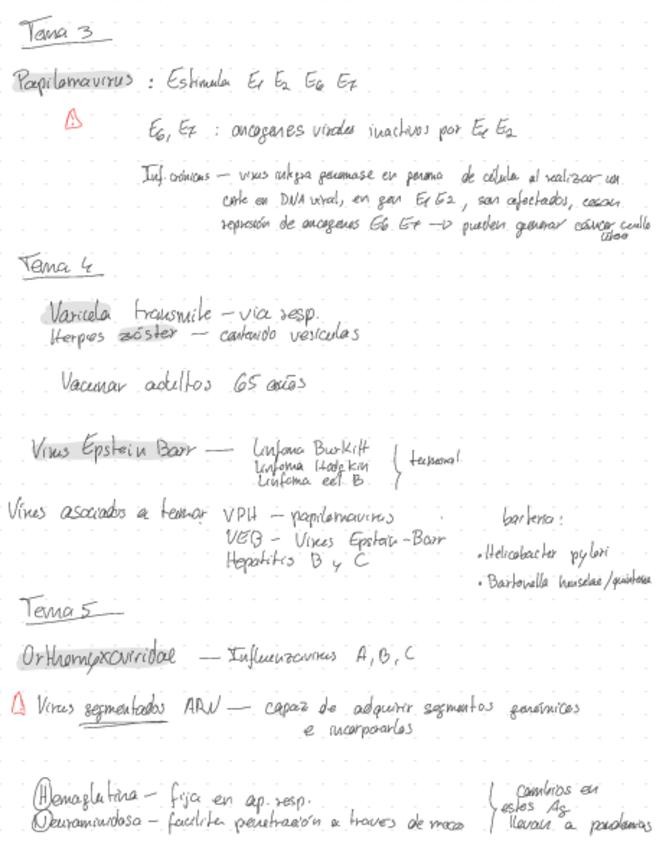 Tema 3
Papilomavirus : Estimula E1 E2 E6 E7
E6, E7 : oncogenes virales inactivos por E1 E2
Inf. crónicas — virus integra genomase en genoma de célula al realizar un
corte en DNA viral, en gen E1 E2, son afectados, cesan
represión de oncogenes E6 E7 → pueden generar cáncer cuello
útero
Tema 4
Varicela transmite — via resp.
Herpes zóster — contenido vesículas
Vacunar adultos 65 años
Virus Epstein Barr — Linfoma Burkitt
Linfoma Hodgkin
Linfoma cel B
tumoral
Virus asociados a tumor VPH — papilomavirus
VEB — Virus Epstein-Barr
Hepatitis B y C
bacteria:
• Helicobacter pylori
• Bartonella henselae/quintana
Tema 5
Orthomyxoviridae — Influenzavirus A, B, C
Virus segmentados ARN — capaz de adquirir segmentos genómicos
e incorporarlos
Hemaglutina — fija en ap. resp.
Neuraminidasa — facilita penetración a traves de moco
cambios en
estos Ag
llevan a pandemias